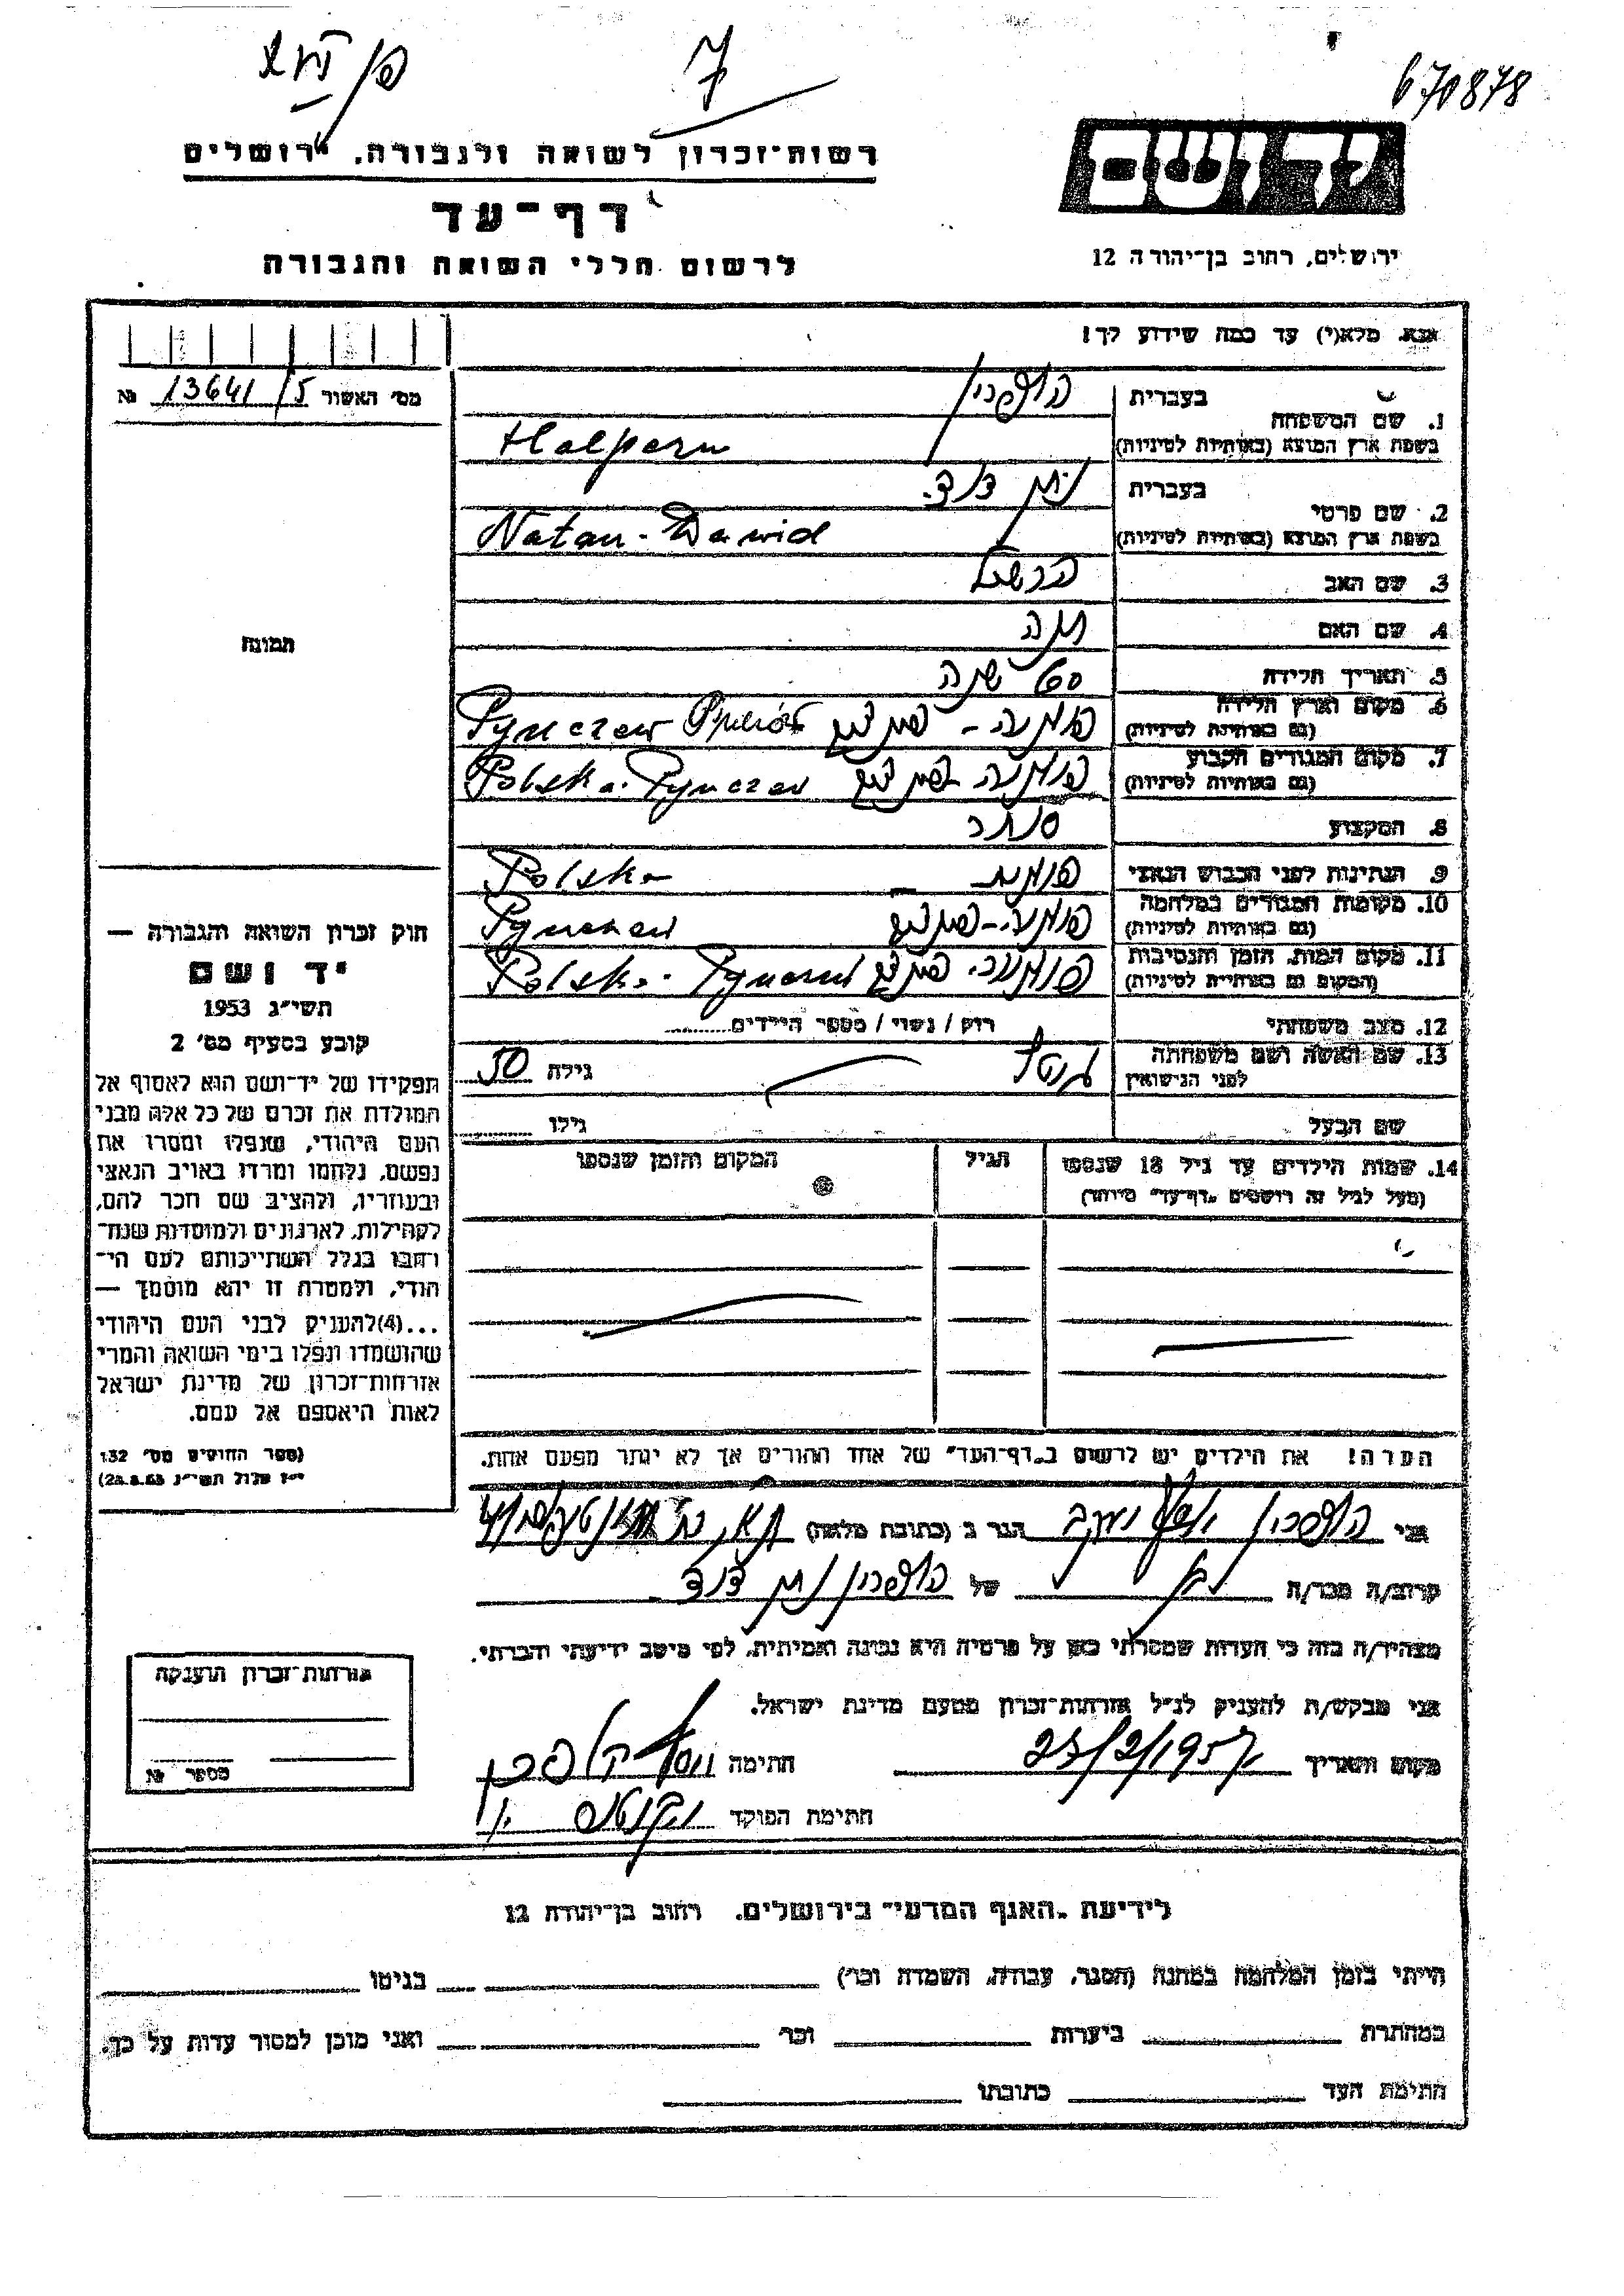 7
670878
יד ושם
רשות־זכרון לשואה ולגבורה, ירושלים
דף־עד
לרשום חללי השואה והגבורה
ירושלים, רחוב בן־יהודה 12
אנא, מלא(י) עד כמה שידוע לך!
מס' האשור 13641/5 №
1. שם המשפחה
בעברית הלפרין
בשפת ארץ המוצא (באותיות לטיניות) Halpern
2. שם פרטי
בעברית נתן דוד
בשפת ארץ המוצא (באותיות לטיניות) Natan-Dawid
3. שם האב הרשל
4. שם האם חנה
5. תאריך הלידה 60 שנה
6. מקום וארץ הלידה
(גם באותיות לטיניות) פולניה - פינצוב Pynczew
7. מקום המגורים הקבוע
(גם באותיות לטיניות) פולניה פינצוב Polska. Pynczew
8. המקצוע סוחר
9. הנתינות לפני הכבוש הנאצי פולנית Polska
10. מקומות המגורים במלחמה
(גם באותיות לטיניות) פולניה-פינצוב
11. מקום המות, הזמן והנסיבות
(המקום גם באותיות לטיניות) פולניה פינצוב Polska
12. מצב משפחתי רוק / נשוי / מספר הילדים
13. שם האשה ושם משפחתה
לפני הנישואין גילה 50
שם הבעל גילו
14. שמות הילדים עד גיל 18 שנספו
(מעל לגיל זה רושמים "דף־עד" מיוחד)
הגיל
המקום והזמן שנספו
תמונה
חוק זכרון השואה והגבורה —
יד ושם
תשי"ג 1953
קובע בסעיף מס' 2
תפקידו של יד־ושם הוא לאסוף אל
המולדת את זכרם של כל אלה מבני
העם היהודי, שנפלו ומסרו את
נפשם, נלחמו ומרדו באויב הנאצי
ובעוזריו, ולהציב שם וזכר להם,
לקהילות, לארגונים ולמוסדות שנח־
רבו בגלל השתייכותם לעם הי־
הודי, ולמטרה זו יהא מוסמך —
...(4)להעניק לבני העם היהודי
שהושמדו ונפלו בימי השואה והמרי
אזרחות־זכרון של מדינת ישראל
לאות היאספם אל עמם.
(ספר החוקים מס' 132
י"ז אלול תשי"ג 28.8.53)
הערה! את הילדים יש לרשום ב"דף־העד" של אחד ההורים אך לא יותר מפעם אחת.
אני הלפרין יוסף יעקב הגר ב (כתובת מלאה)
קרוב/ה מכר/ה בן של הלפרין נתן דוד
מצהיר/ה בזה כי העדות שמסרתי כאן על פרטיה היא נכונה ואמיתית, לפי מיטב ידיעתי והכרתי.
אני מבקש/ת להעניק לנ"ל אזרחות־זכרון מטעם מדינת ישראל.
מקום ותאריך 23/2/1957 חתימה
חתימת הפוקד
אזרחות־זכרון הוענקה
מספר №
לידיעת "האגף המדעי" בירושלים, רחוב בן־יהודה 12
הייתי בזמן המלחמה במחנה (הסגר, עבודה, השמדה וכו') בגיטו
במחתרת ביערות וכו' ואני מוכן למסור עדות על כך.
חתימת העד כתובתו